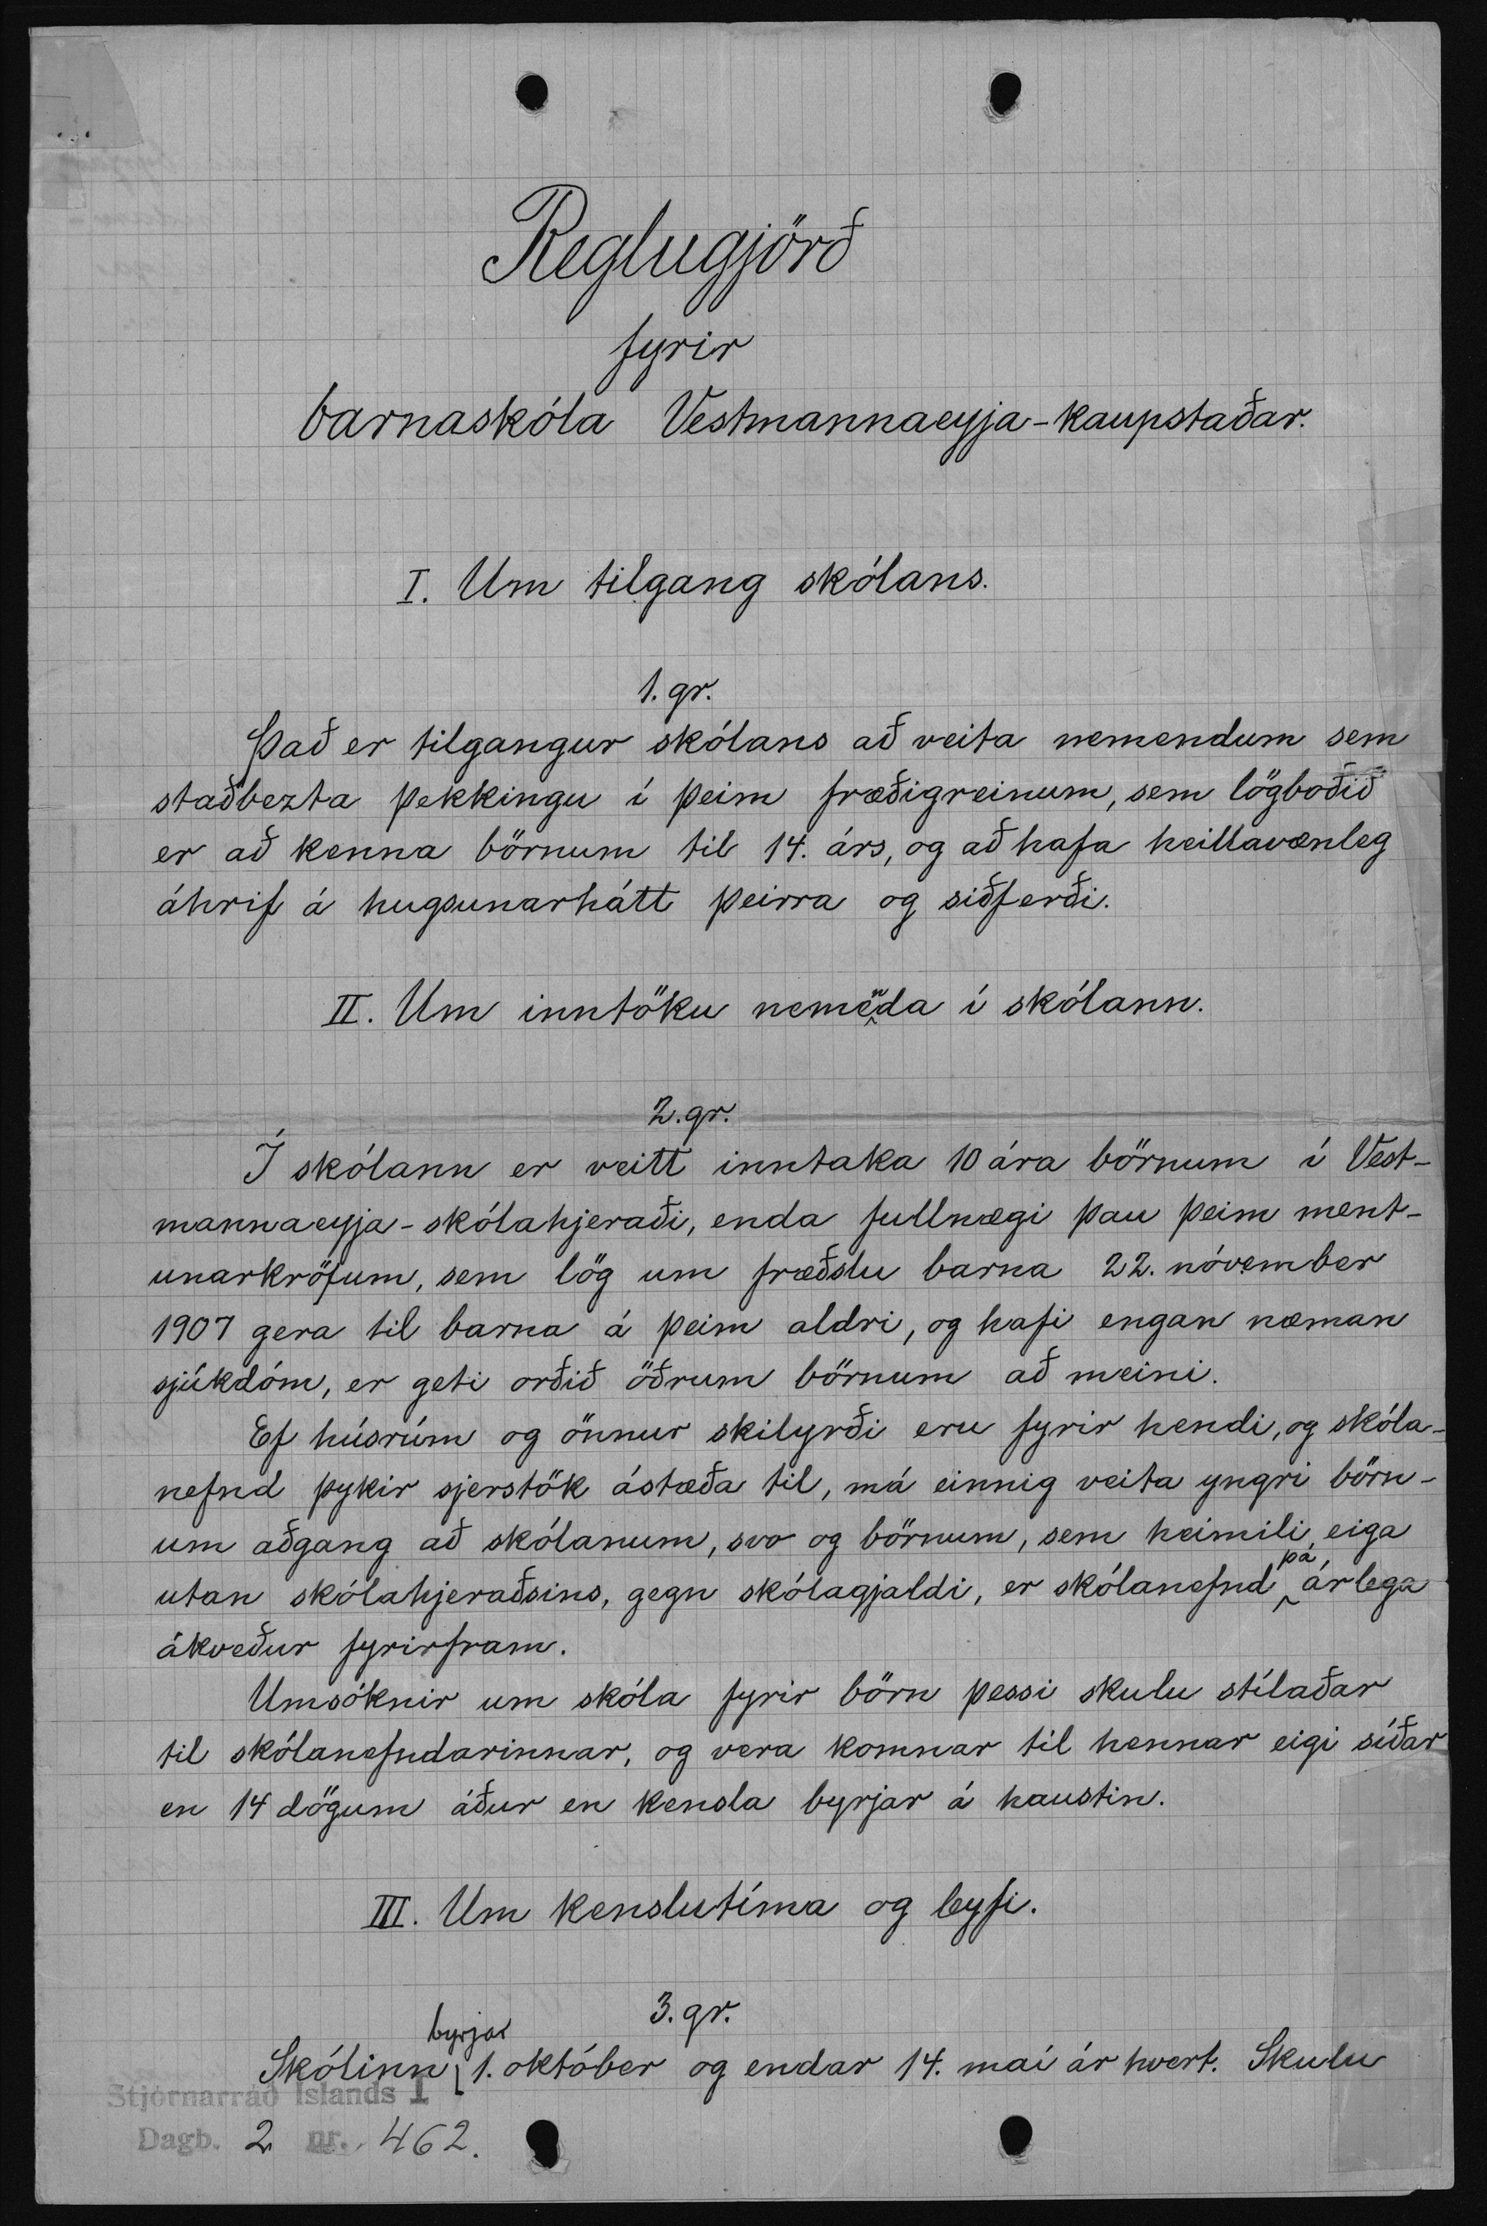 Reglugjörð
fyrir
barnaskóla Vestmannaeyja-kaupstaðar.
I. Um tilgang skólans.
1. gr.
Það er tilgangur skólans að veita nemendum sem
staðbezta þekkingu í þeim fræðigreinum, sem lögboðið
er að kenna börnum til 14. árs, og að hafa heillavænleg
áhrif á hugsunarhátt þeirra og siðferði.
II. Um inntöku nemenda í skólann.
2. gr.
Í skólann er veitt inntaka 10 ára börnum í Vest-
mannaeyja-skólahjeraði, enda fullnægi þau þeim ment-
unarkröfum, sem lög um fræðslu barna 22. nóvember
1907 gera til barna á þeim aldri, og hafi engan næman
sjúkdóm, er geti orðið öðrum börnum að meini.
Ef húsrúm og önnur skilyrði eru fyrir hendi, og skóla-
nefnd þykir sjerstök ástæða til, má einnig veita yngri börn-
um aðgang að skólanum, svo og börnum, sem heimili eiga
utan skólahjeraðsins, gegn skólagjaldi, er skólanefnd þá árlega
ákveður fyrirfram.
Umsóknir um skóla fyrir börn þessi skulu stílaðar
til skólanefndarinnar, og vera komnar til hennar eigi síðar
en 14 dögum áður en kensla byrjar á haustin.
III. Um kenslutíma og leyfi.
3. gr.
Skólinn byrjar 1. október og endar 14. maí ár hvert. Skulu
Stjórnarráð Íslands I
Dagb. 2 nr. 462.